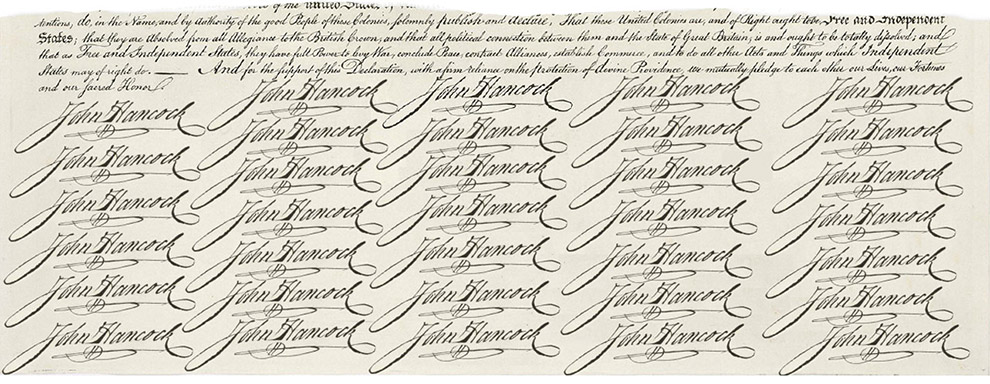 of the united States,
tentions, do, in the Name, and by Authority of the good People of these Colonies, solemnly publish and declare, That these United Colonies are, and of Right ought to be, Free and Independent
States; that they are Absolved from all Allegiance to the British Crown, and that all political connection between them and the State of Great Britain, is and ought to be totally dissolved; and
that as Free and Independent States, they have full Power to levy War, conclude Peace, contract Alliances, establish Commerce, and to do all other Acts and Things which Independent
States may of right do. — And for the support of this Declaration, with a firm reliance on the protection of divine Providence, we mutually pledge to each other our Lives, our Fortunes
and our sacred Honor.
John Hancock John Hancock John Hancock John Hancock
John Hancock John Hancock John Hancock John Hancock John Hancock
John Hancock John Hancock John Hancock John Hancock John Hancock
John Hancock John Hancock John Hancock John Hancock John Hancock
John Hancock John Hancock John Hancock John Hancock John Hancock
John Hancock John Hancock John Hancock John Hancock John Hancock
John Hancock John Hancock John Hancock John Hancock John Hancock